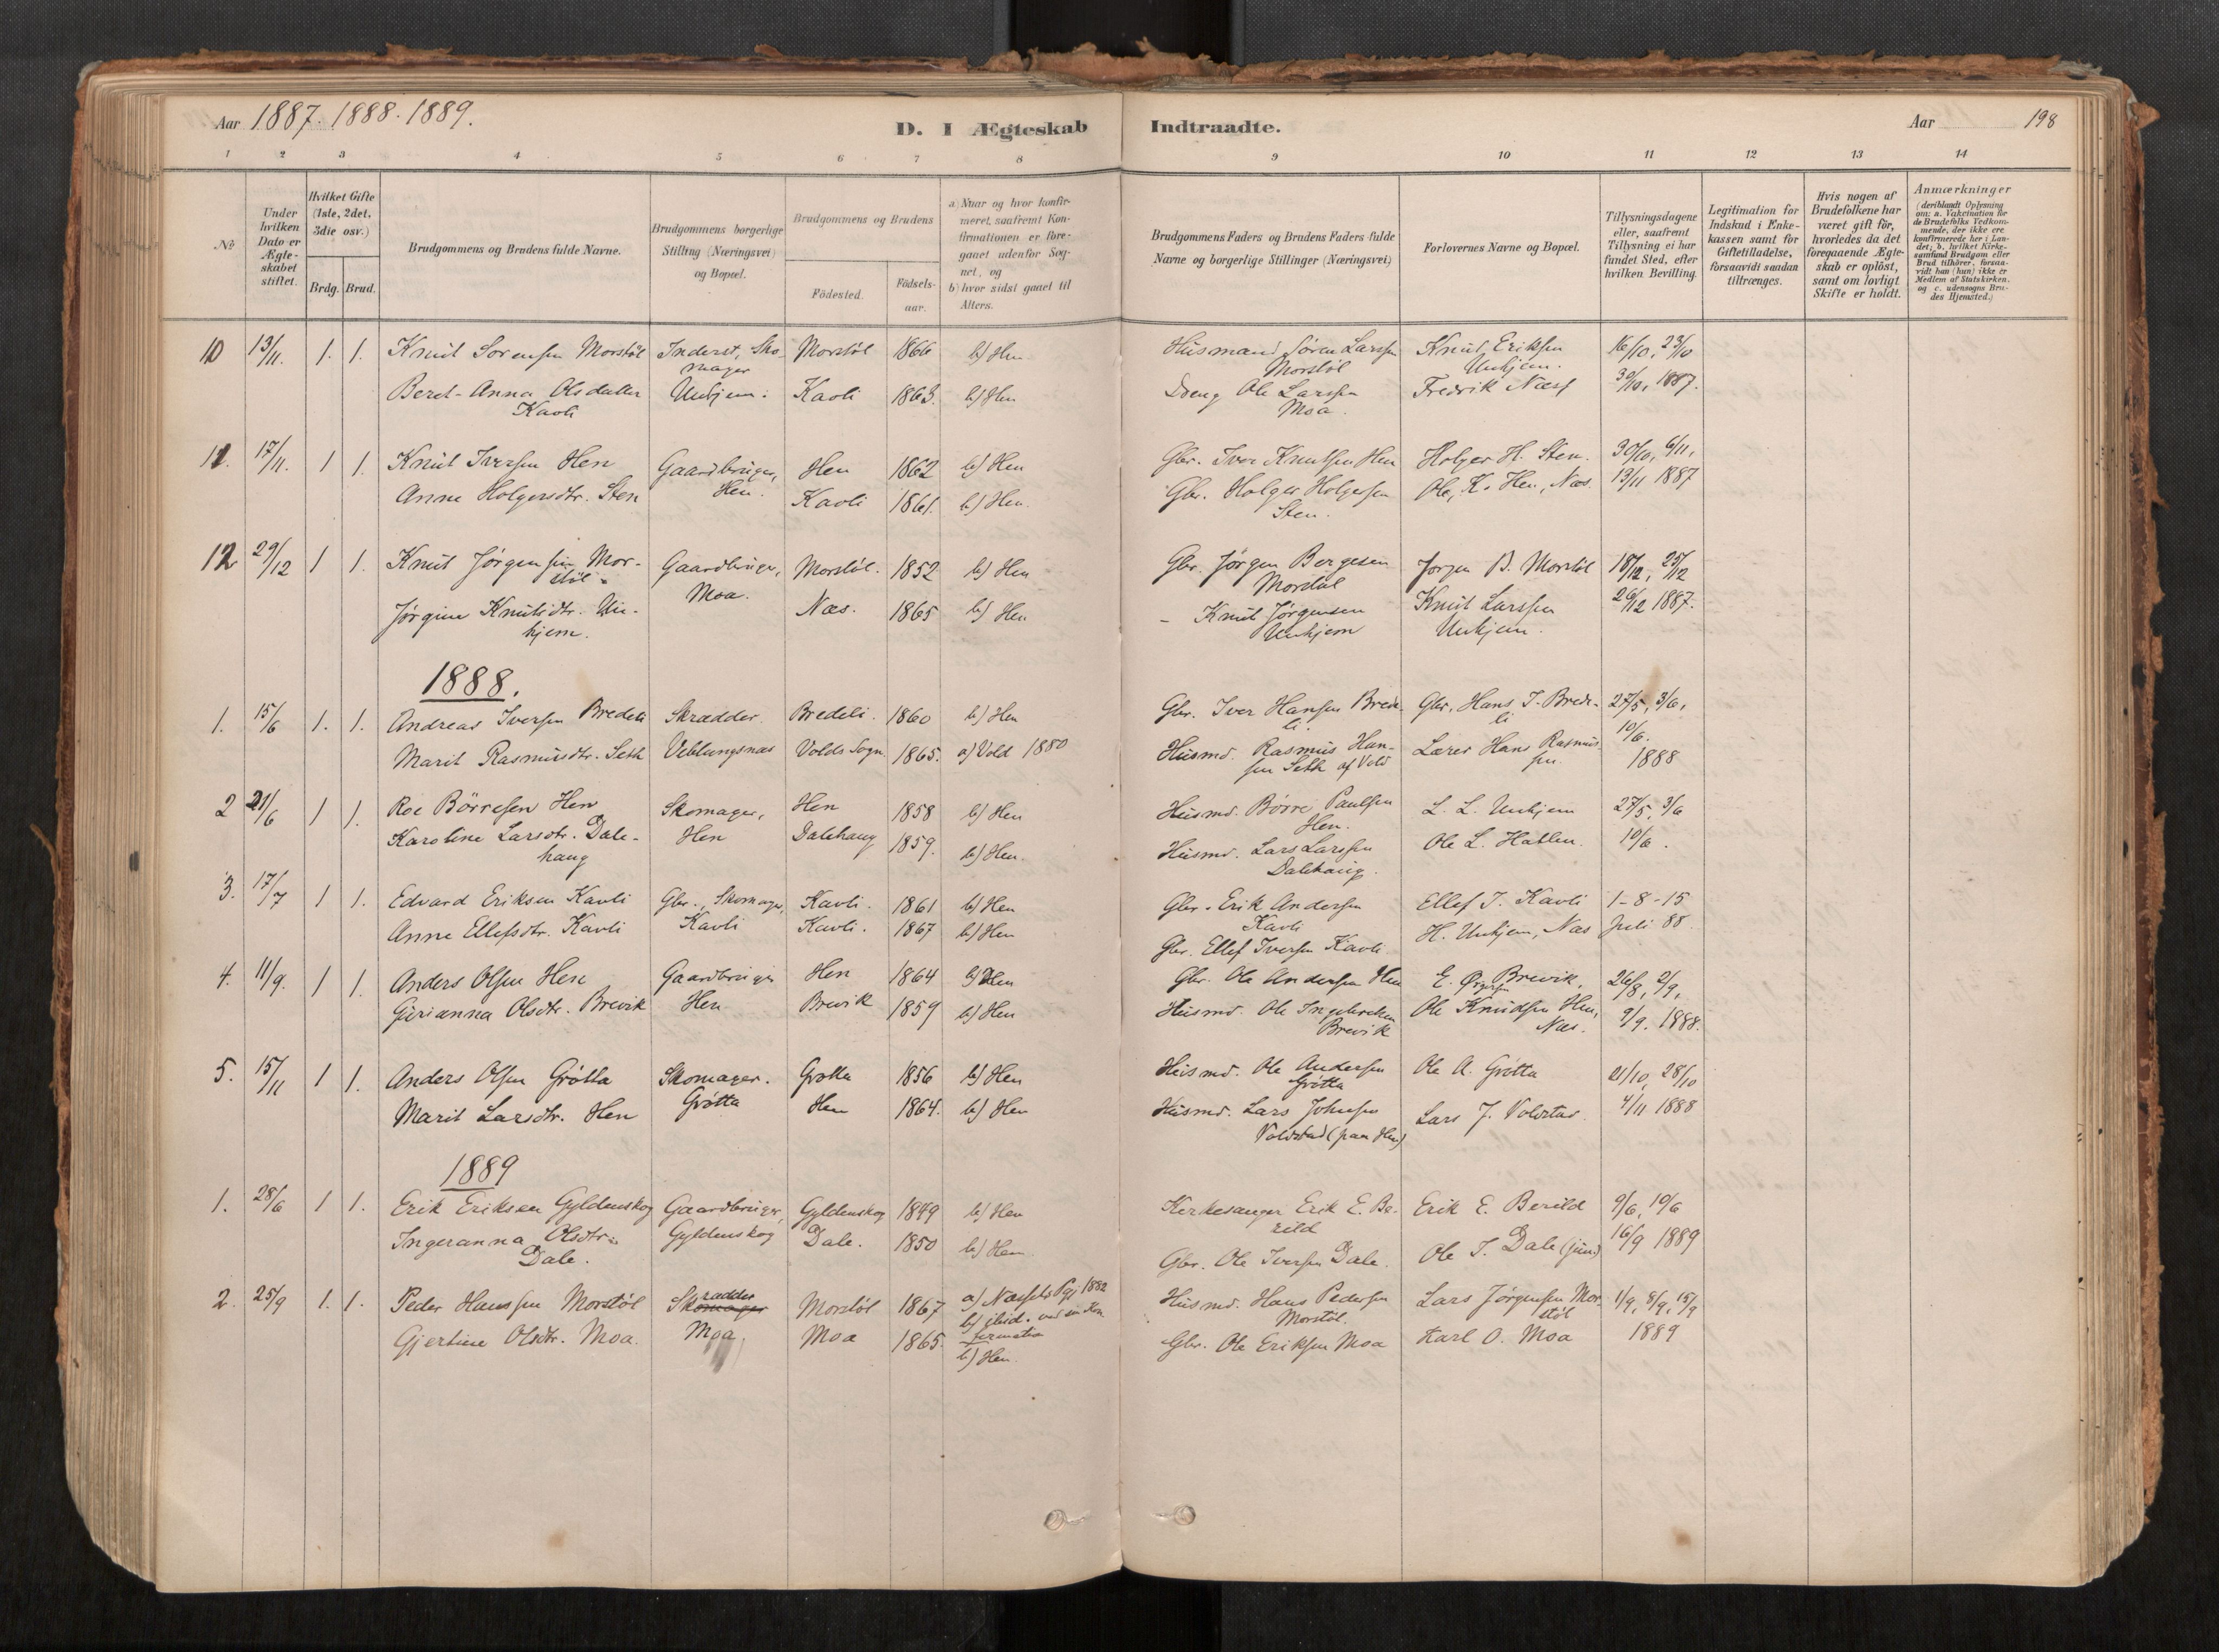 Aar 1887. 1888. 1889.
D. I Ægteskab Indtraadte.
Aar 198
1 2 3 4 5 6 7 8 9 10 11 12 13 14
No
Under hvilken Dato er Ægteskabet stiftet.
Hvilket Gifte (1ste, 2det, 3die osv.)
Brdg. Brud.
Brudgommens og Brudens fulde Navne.
Brudgommens borgerlige Stilling (Næringsvei) og Bopæl.
Brudgommens og Brudens
Födested. Födselsaar.
a) Naar og hvor konfirmeret, saafremt Konfirmationen er foregaaet udenfor Sognet, og
b) hvor sidst gaaet til Alters.
Brudgommens Faders og Brudens Faders fulde Navne og borgerlige Stillinger (Næringsvei)
Forlovernes Navne og Bopæl.
Tillysningsdagene eller, saafremt Tillysning ei har fundet Sted, efter hvilken Bevilling.
Legitimation for Indskud i Enkekassen samt for Giftetilladelse, forsaavidt saadan tiltrænges.
Hvis nogen af Brudefolkene har været gift før, hvorledes da det foregaaende Ægteskab er oplöst, samt om lovligt Skifte er holdt.
Anmærkninger (deriblandt Oplysning om: a. Vakcination for de Brudefolks Vedkommende, der ikke ere konfirmerede her i Landet; b. hvilket Kirkesamfund Brudgom eller Brud tilhörer, forsaavidt han (hun) ikke er Medlem af Statskirken, og c. udensogns Brudes Hjemsted.)
10 13/11. 1. 1. Knut Sørensen Morstøl Inderst, Sko- Morstøl 1866 b) Hen Husmand Søren Larssen Knut Eriksen 16/10, 23/10
mager Morstøl Unhjem.
Beret-Anna Olsdatter Unhjem. Kavli 1863. b) Hen Dreng Ole Larssen Fredrik Næss 30/10, 1887.
Kavli Moa.
11. 17/11. 1 1. Knut Iversen Hen Gaardbruger, Hen 1862 b) Hen Gbr. Iver Knutsen Hen Holger H. Sten. 30/10, 6/11,
Anne Holgersdtr. Sten Hen. Kavli 1861. b) Hen. Gbr. Holger Holgersen Ole K. Hen, Næs. 13/11 1887
Sten.
12 29/12 1 1. Knut Jørgensen Mor- Gaardbruger, Morstøl. 1852 b) Hen Gbr. Jørgen Børgesen Jørgen B. Morstøl 18/12, 25/12
støl Moa. Morstøl
Jørgine Knutsdtr. Un- Næs. 1865 b) Hen - Knut Jørgensen Knut Larssen 26/12 1887.
hjem. Unhjem Unhjem.
1888.
1. 15/6 1. 1. Andreas Iversen Bredeli Skrædder. Bredeli. 1860 b) Hen Gbr. Iver Hansen Brede- Gbr. Hans I. Brede- 27/5, 3/6,
li. li 10/6.
Marit Rasmusdtr. Seth Veblungsnæs Volds Sogn. 1865. a) Vold 1880 Husmd. Rasmus Han- Lærer Hans Rasmus- 1888
sen Seth af Vold sen.
2 21/6 1 1. Roe Børresen Hen Skomager, Hen 1858 b) Hen Husmd. Børre Paulsen L. L. Unhjem 27/5, 3/6
Hen.
Karoline Larsdtr. Dale- Hen Dalehaug 1859. b) Hen. Husmd. Lars Larssen Ole L. Hatlen. 10/6.
haug Dalehaug.
3. 17/7 1 1. Edvard Eriksen Kavli Gbr., Skomager, Kavli. 1861 b) Hen Gbr. Erik Andersen Ellef I. Kavli 1-8-15
Kavli
Anne Ellefsdtr. Kavli Kavli Kavli. 1867 b) Hen Gbr. Ellef Iversen Kavli H. Unhjem, Næs Juli 88
4. 11/9. 1 1. Anders Olsen Hen Gaardbruger Hen 1864 b) Hen Gbr. Ole Andersen Hen E. Brevik. 26/8, 2/9,
Gurianna Olsdtr. Brevik Hen Brevik 1859 b) Hen Husmd. Ole Ingebretsen Ole Knudsen Hen, 9/9. 1888.
Brevik Næs.
5. 15/11 1 1. Anders Olsen Grötta Skomager. Grötta 1856 b) Hen Husmd. Ole Andersen Ole A. Grötta 21/10, 28/10
Grötta
Marit Larsdtr. Hen Grötta Hen 1864. b) Hen Husmd. Lars Johnsen Lars J. Voldstad. 4/11 1888
Voldstad (paa Hen)
1889
1. 28/6 1 1. Erik Eriksen Gyldenskog Gaardbruger, Gyldenskog 1849 b) Hen Kirkesanger Erik E. Be- Erik E. Berild 9/6, 10/6
rild
Ingeranna Olsdtr. Gyldenskog Dale. 1850 b) Hen. Gbr. Ole Iversen Dale. Ole I. Dale (jun) 16/9 1889
Dale.
2. 25/9 1. 1. Peder Hanssen Morstøl Skomager rædder Morstøl 1867 a) Næssets Pgj 1882 Husmd. Hans Pedersen Lars Jørgensen Mor- 1/9, 8/9, 15/9
b) ibid. ved sin Kon- Morstøl. støl
Gjertine Olsdtr. Moa. Moa Moa 1865. firmation Gbr. Ole Eriksen Moa Karl O. Moa 1889
b) Hen.